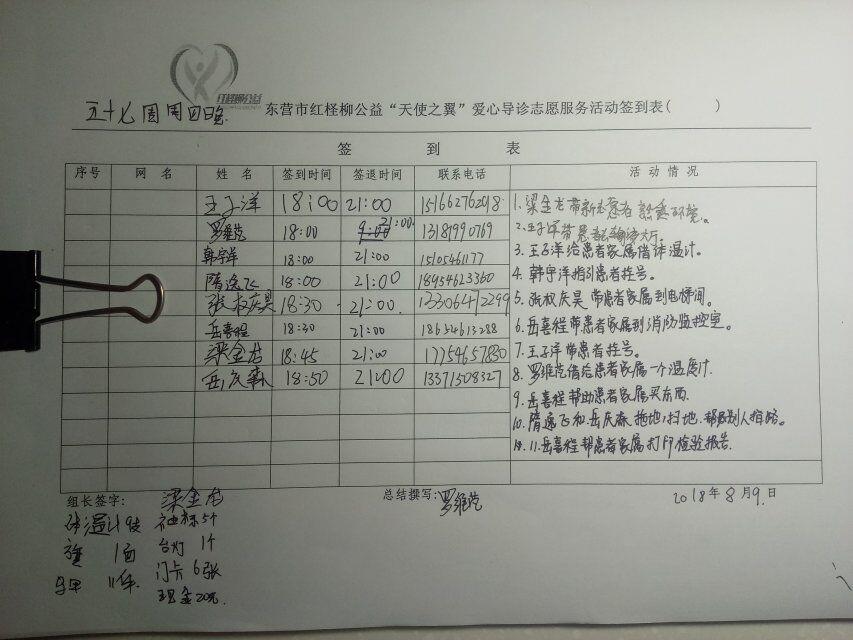 红柽柳公益
五十七周周四晚
东营市红柽柳公益“天使之翼”爱心导诊志愿服务活动签到表( )
签 到 表
序号 网 名 姓 名 签到时间 签退时间 联系电话 活 动 情 况
王子洋 18:00 21:00 15166276298
罗维艺 18:00 9:00 21:00. 13181990769
韩宇洋 18:00 21:00 1505461177
隋逸飞 18:00 21:00 18954623360
张权庆昊 18:30 21:00 13306472299
岳喜程 18:30 21:00 18654613288
梁金龙 18:45 21:00 17754657830
岳庆森 18:50 21:00 13371508327
1.梁金龙带新志愿者熟悉环境。
2.王子洋带患者去输液大厅.
3.王子洋给患者家属借体温计。
4.韩宇洋指引患者挂号。
5.张权庆昊带患者家属到电梯间。
6.岳喜程带患者家属到消防监控室。
7.王子洋带患者挂号。
8.罗维艺借给患者家属一个温度计.
9.岳喜程帮助患者家属买东西.
10.隋逸飞和岳庆森拖地,扫地.帮助别人指路。
11.岳喜程帮患者家属打印检验报告.
组长签字: 梁金龙
总结撰写: 罗维艺
2018年8月9日
体温计9支 袖标5个
旗 1面 台灯 1个
马甲 11件 门卡 6张
现金20元.